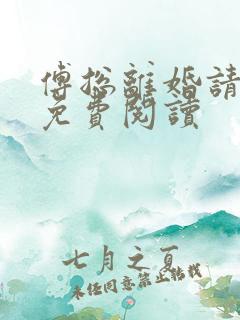 傅總離婚請
免費閱讀
七月之夏
未经同意禁止转载